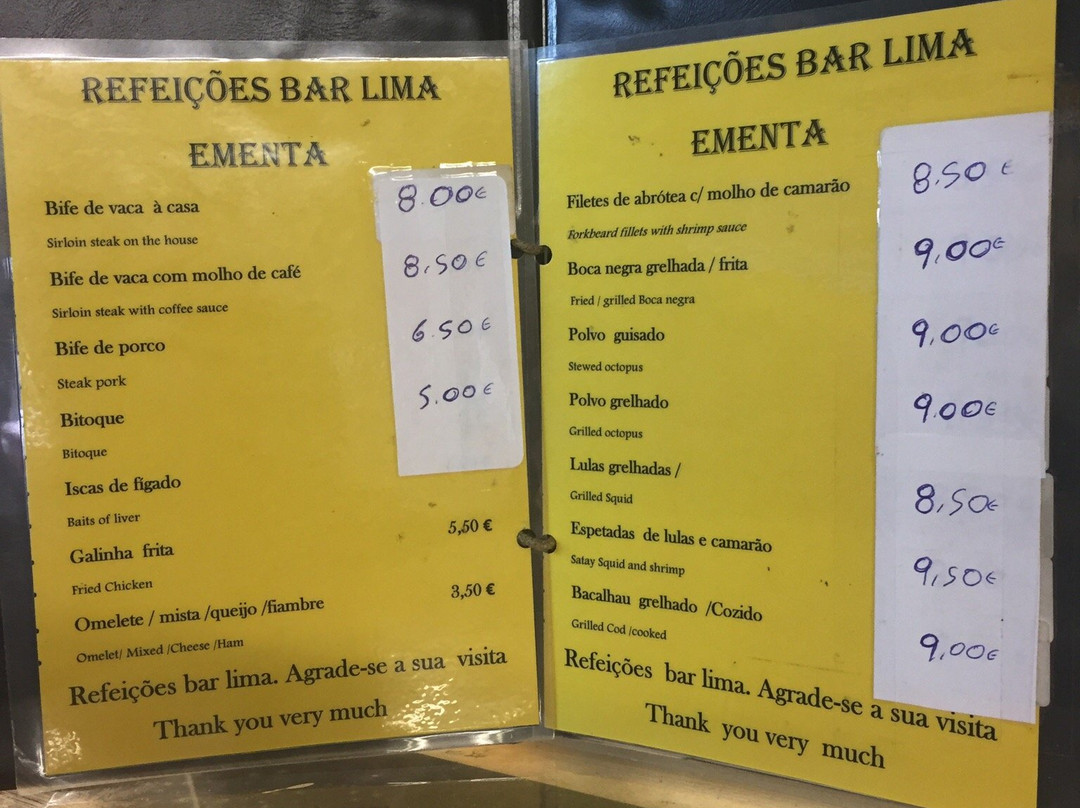 REFEIÇÕES BAR LIMA
EMENTA
Bife de vaca à casa 8.00€
Sirloin steak on the house
Bife de vaca com molho de café 8,50€
Sirloin steak with coffee sauce
Bife de porco 6.50€
Steak pork
Bitoque 5.00€
Bitoque
Iscas de fígado
Baits of liver
Galinha frita 5,50 €
Fried Chicken
Omelete / mista /queijo /fiambre 3,50 €
Omelet/ Mixed /Cheese /Ham
Refeições bar lima. Agrade-se a sua visita
Thank you very much
REFEIÇÕES BAR LIMA
EMENTA
Filetes de abrótea c/ molho de camarão 8.50 €
Forkbeard fillets with shrimp sauce
Boca negra grelhada / frita 9,00€
Fried / grilled Boca negra
Polvo guisado 9,00€
Stewed octopus
Polvo grelhado 9.00€
Grilled octopus
Lulas grelhadas / 8,50€
Grilled Squid
Espetadas de lulas e camarão 9,50€
Satay Squid and shrimp
Bacalhau grelhado /Cozido 9,00€
Grilled Cod /cooked
Refeições bar lima. Agrade-se a sua visita
Thank you very much